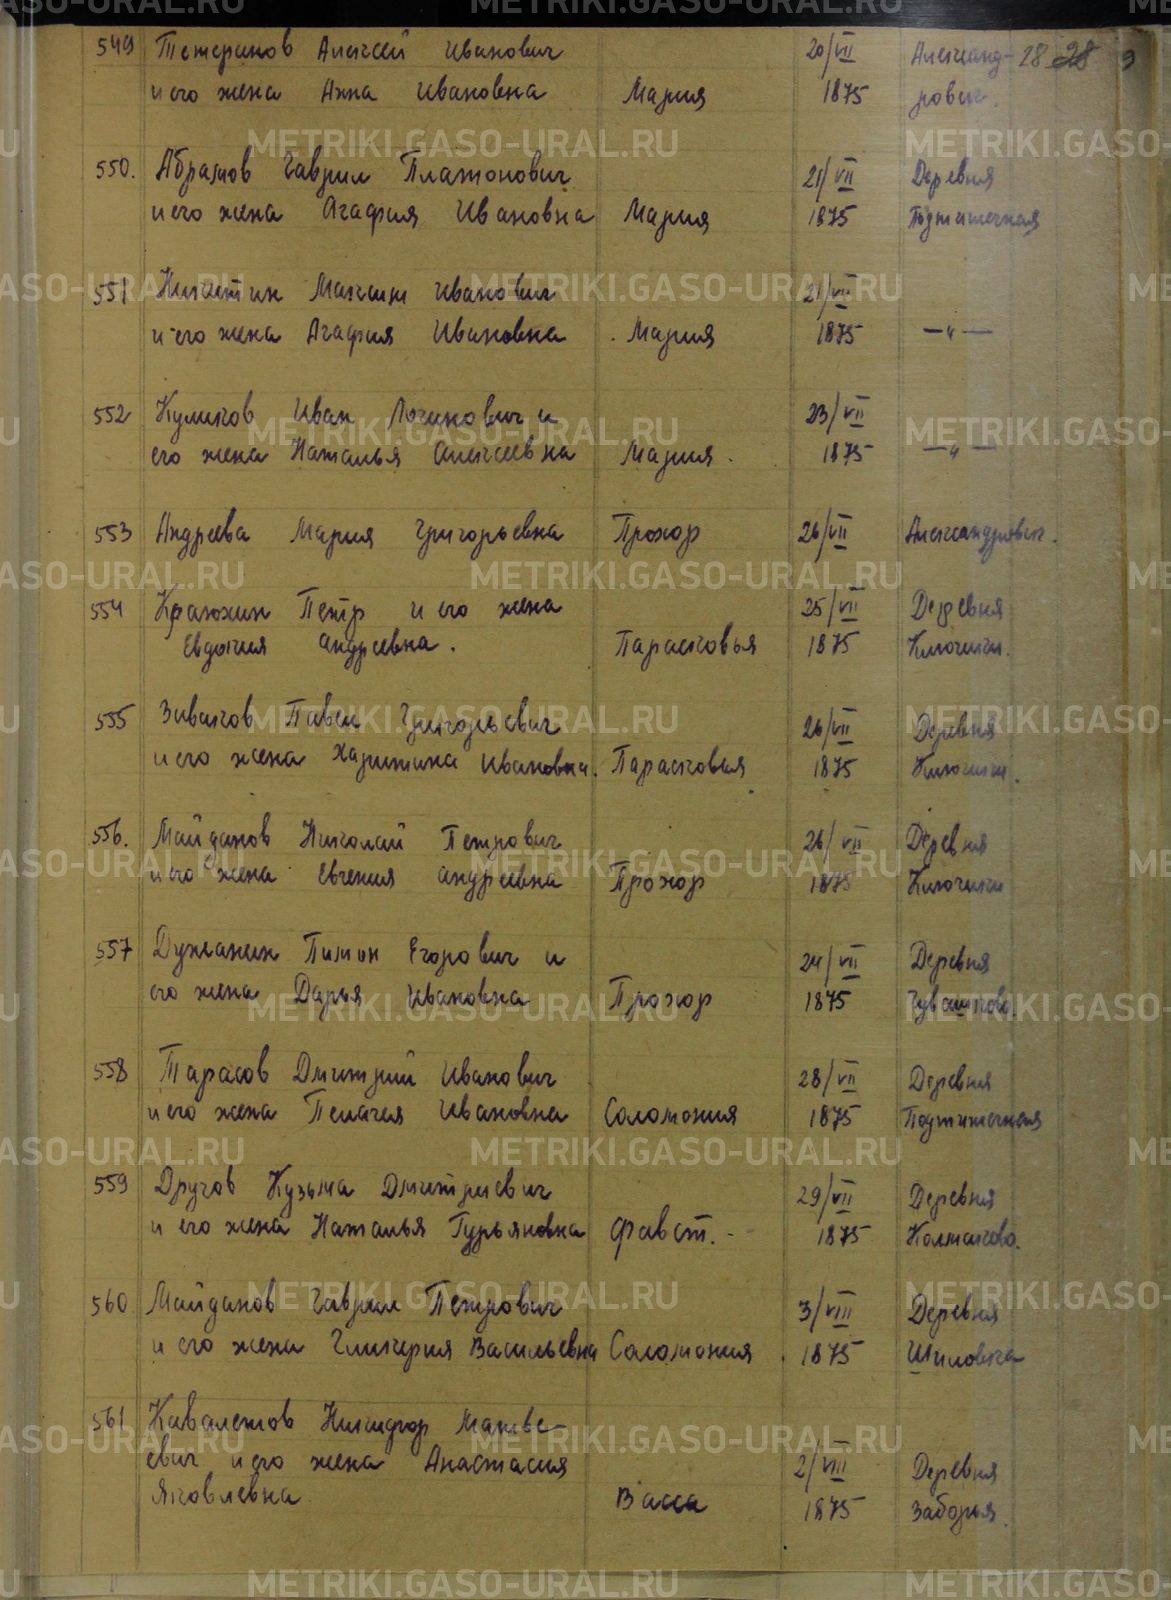 549 Тетеринов Алексей Иванович 20/VII Александ- 28 28
и его жена Анна Ивановна Мария 1875 рович.
550. Абрамов Гаврил Платонович 21/VII Деревня
и его жена Агафия Ивановна Мария 1875 Подтипечная
551 Никитин Максим Иванович 21/VII
и его жена Агафия Ивановна Мария 1875 —"—
552 Куликов Иван Логинович и 23/VII
его жена Наталья Алексеевна Мария. 1875 —"—
553 Андреева Мария Григорьевна Прохор 26/VII Александрович.
554 Пётр и его жена 25/VII Деревня
Евдокия Андреевна. Парасковья 1875 Ключики.
555 Зиваков Павел Григорьевич 26/VII Деревня
и его жена Харитина Ивановна. Парасковья 1875 Ключики.
556. Майданов Николай Петрович 26/VII Деревня
и его жена Евгения Андреевна Прохор 1875 Ключики
557 Пимон Егорович и 24/VII Деревня
его жена Дарья Ивановна Прохор 1875 Чувашково.
558 Тарасов Дмитрий Иванович 28/VII Деревня
и его жена Пелагея Ивановна Соломония 1875 Подтипечная
559 Другов Кузьма Дмитриевич 29/VII Деревня
и его жена Наталья Гурьяновна Фавст. 1875 Колмаково.
560 Майданов Гаврил Петрович 3/VIII Деревня
и его жена Гликерия Васильевна Соломония 1875 Шиловка
561 Кавалетов Никифор Матве-
евич и его жена Анастасия 2/VIII Деревня
Яковлевна Васса 1875 Заборья.
METRIKI.GASO-URAL.RU